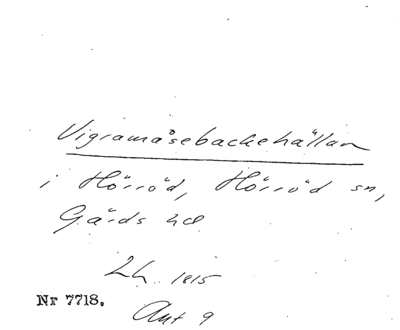 Vigramåsebackehällan
i Hörröd, Hörröd sn,
Gärds hd
Lh. 1815
Nr 7718.
Akt 9